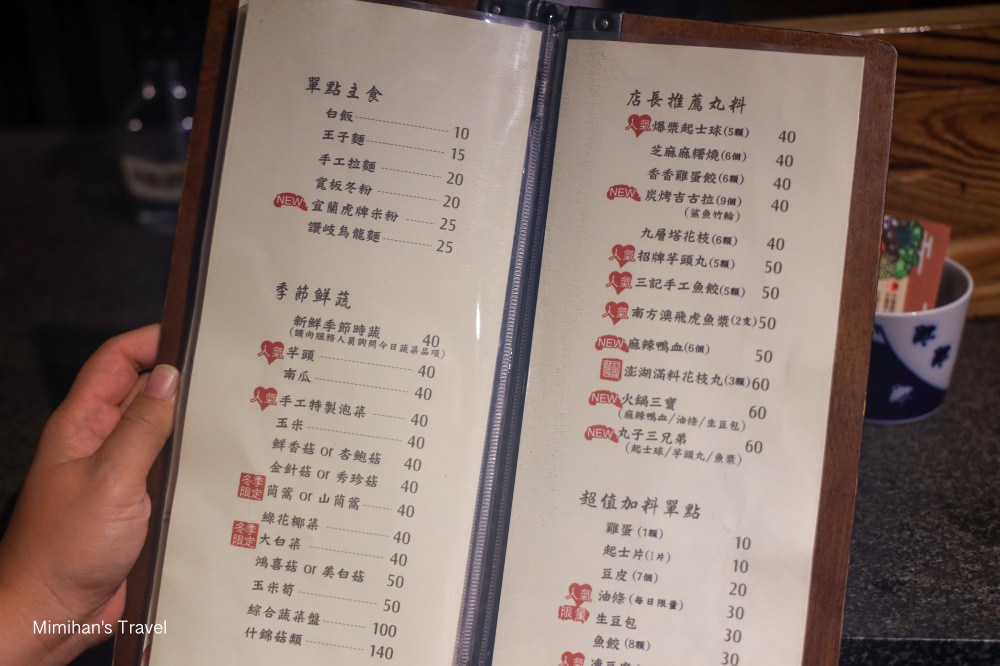 單點主食
白飯 10
王子麵 15
手工拉麵 20
寬板冬粉 20
NEW 宜蘭虎牌米粉 25
讚岐烏龍麵 25
季節鮮蔬
新鮮季節時蔬 40
(請向服務人員詢問今日蔬菜品項)
人氣 芋頭 40
南瓜 40
人氣 手工特製泡菜 40
玉米 40
鮮香菇 or 杏鮑菇 40
金針菇 or 秀珍菇 40
冬季限定 茼蒿 or 山茼蒿 40
綠花椰菜 40
冬季限定 大白菜 40
鴻喜菇 or 美白菇 50
玉米筍 50
綜合蔬菜盤 100
什錦菇類 140
店長推薦丸料
人氣 爆漿起士球(5顆) 40
芝麻麻糬燒(6個) 40
香香雞蛋餃(6顆) 40
NEW 炭烤吉古拉(9個) 40
(鯊魚竹輪)
九層塔花枝(6顆) 40
人氣 招牌芋頭丸(5顆) 50
人氣 三記手工魚餃(5顆) 50
人氣 南方澳飛虎魚漿(2支) 50
NEW 麻辣鴨血(6個) 50
澎湖滿料花枝丸(3顆) 60
NEW 火鍋三寶 60
(麻辣鴨血/油條/生豆包)
NEW 丸子三兄弟 60
(起士球/芋頭丸/魚漿)
超值加料單點
雞蛋(1顆) 10
起士片(1片) 10
豆皮(7個) 20
人氣 油條(每日限量) 30
限量 生豆包 30
魚餃(8顆) 30
人氣 凍豆腐
Mimihan's Travel